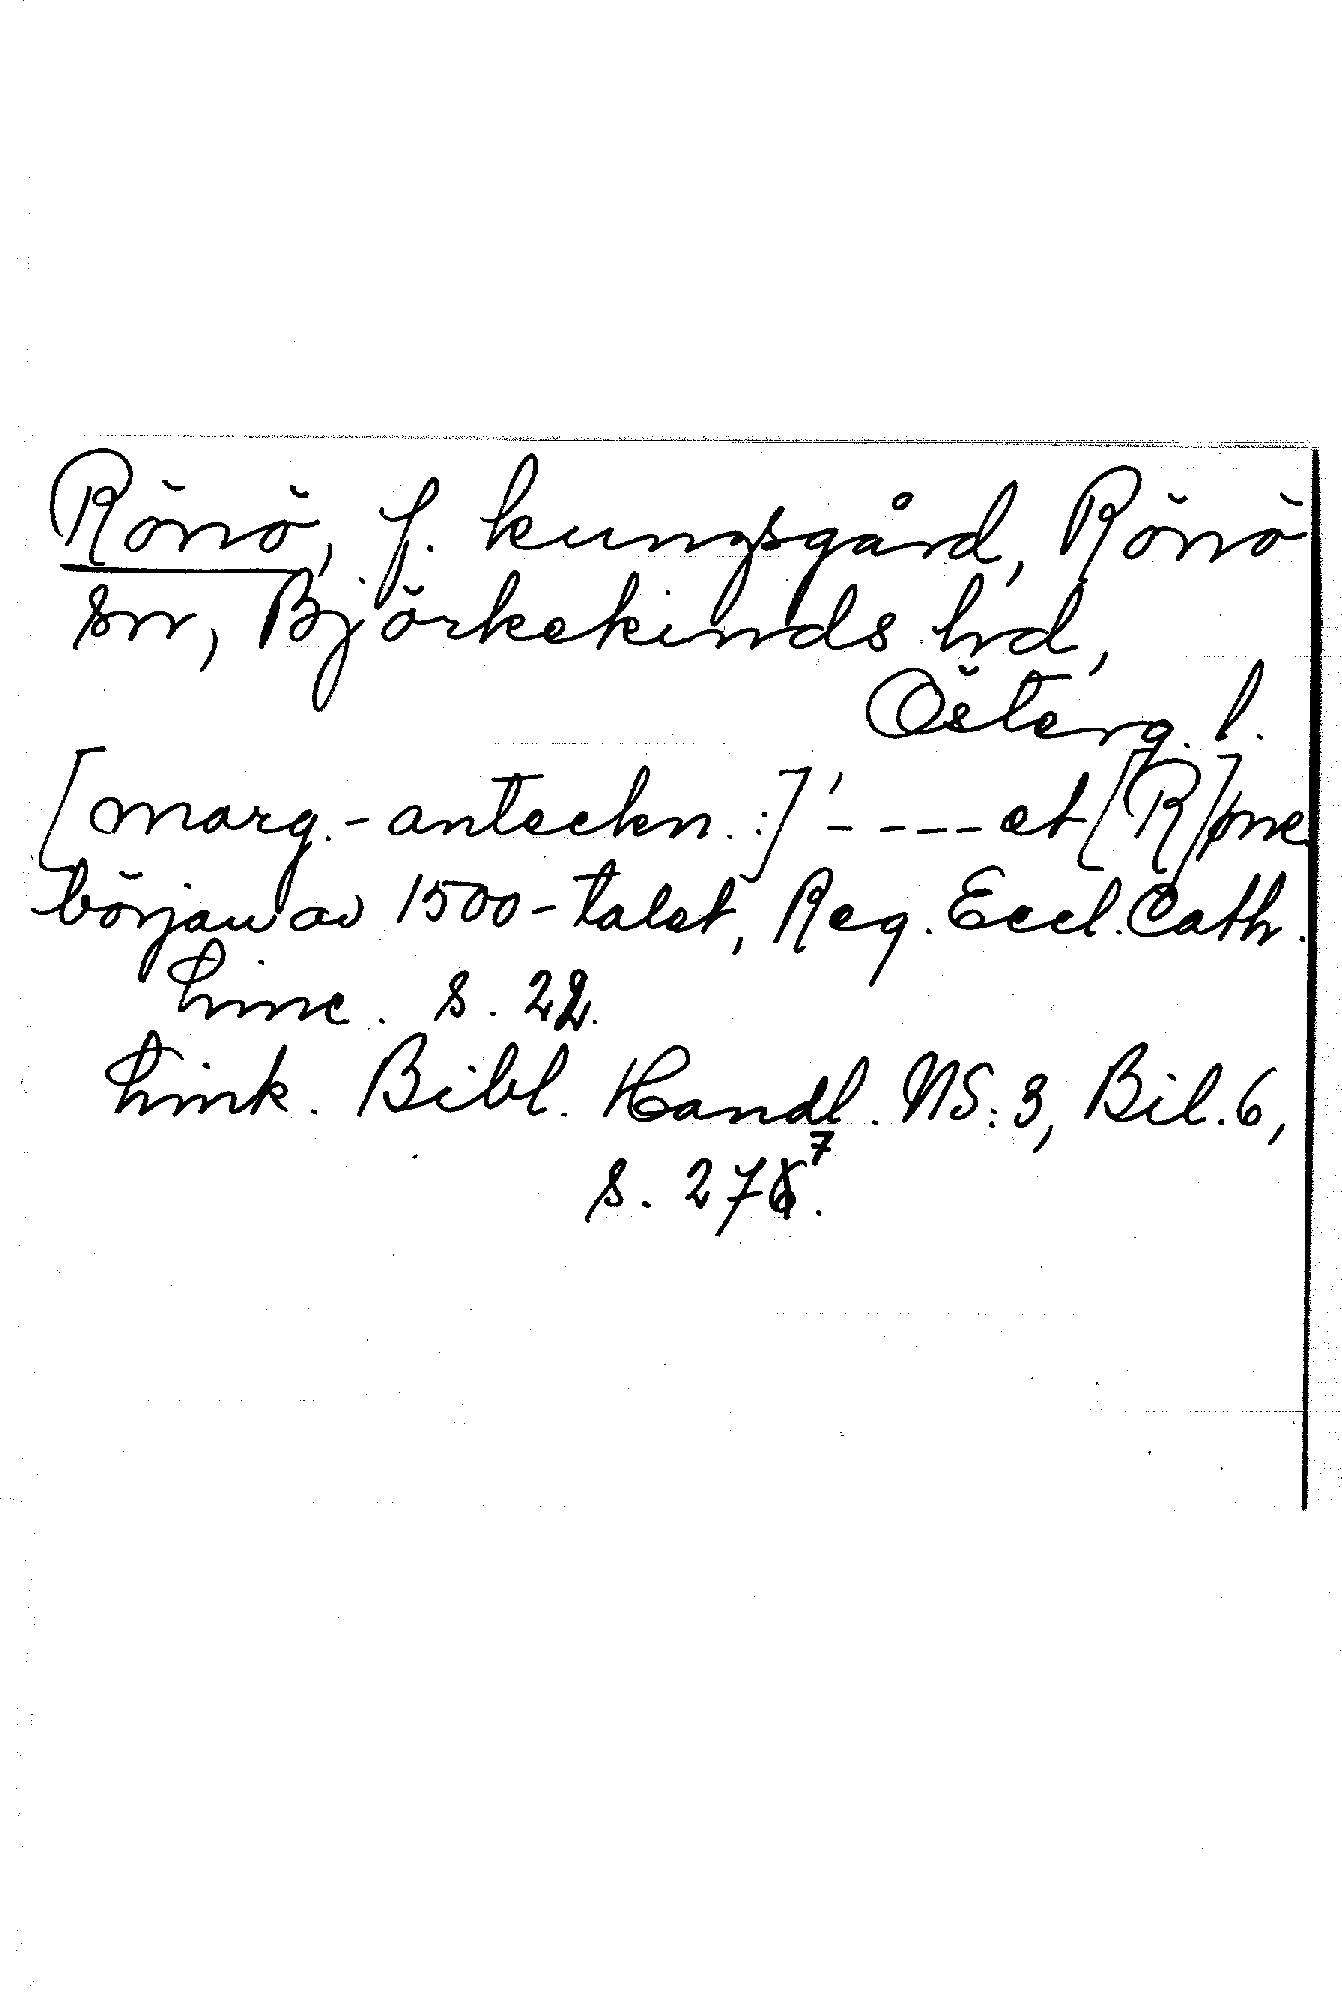 Rönö, f. kungsgård, Rönö
sn, Björkekinds hd,
Österg. l.
[marg.-anteckn.:] ' - - - - et [R]øne
början av 1500-talet, Reg. Eccl. Cath.
Linc. s. 22.
Link. Bibl. Handl. NS: 3, Bil. 6,
s. 277.